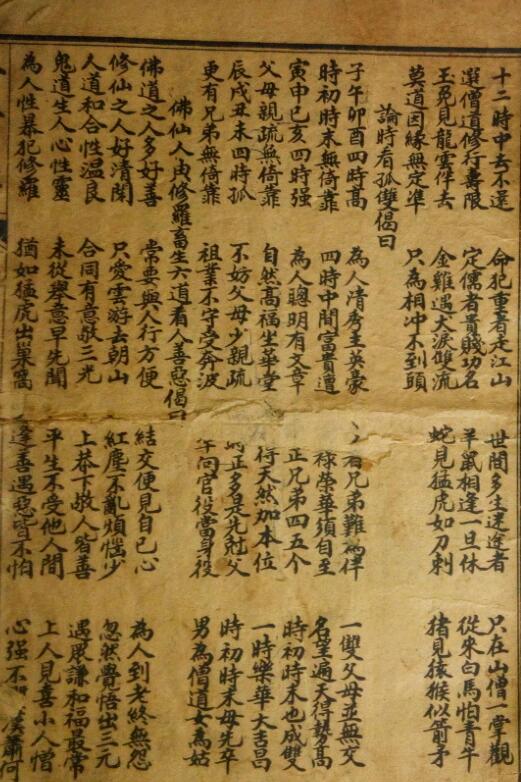 十二時中去不還 命犯重者走江山 世間多生迷途者 只在山僧一掌觀
選僧道修行壽限 定儒者貴賤功名 羊鼠相逢一旦休 從來白馬怕青牛
玉兔見龍雲伴去 金雞遇犬淚雙流 蛇見猛虎如刀刺 猪見猿猴似箭矛
莫道因緣無定準 只為相冲不到頭
論時有孤雙偈曰
子午卯酉四時高 為人清秀主英豪 若兄弟難為伴 一雙父母並無交
時初時末無倚靠 四時中間富貴遭 祿榮華須自至 名望遍天得勢高
寅申巳亥四時强 為人聰明有文章 正兄弟四五个 時初時末也成雙
父母親疏無倚靠 自然高福坐華堂 得天然加本位 一時榮華大吉昌
辰戌丑未四時孤 不妨父母少親疏 正多是先尅父 時初時末母先卒
更有兄弟無倚靠 祖業不守受奔波 官役當身役 男為僧道女為姑
佛仙人鬼修羅畜生六道看人善惡偈曰
佛道之人多好善 常要與人行方便 結交便見自己心 為人到老終無怨
修仙之人好清閑 只愛雲游去朝山 紅塵不亂煩惱少 忽然覺悟出三元
人道和合性温良 合同有意敬三光 上恭下敬人皆善 遇眾謙和福最常
鬼道生人心性靈 未從舉意早先聞 平生不受他人間 上人見喜小人憎
為人性暴犯修羅 猶如猛虎出巢窩 逢善遇惡皆不怕 心强不漢蕭何